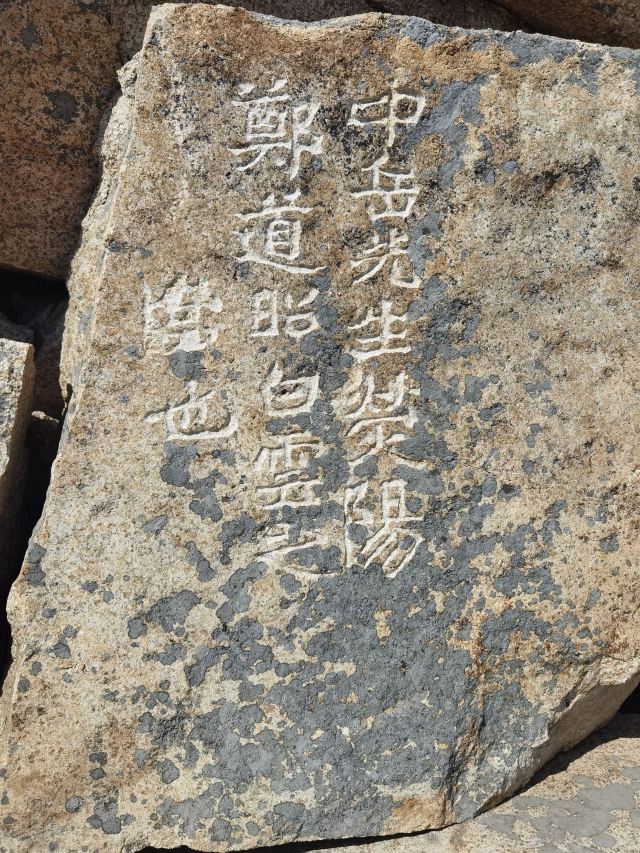 中岳先生滎陽
鄭道昭白雲之
也